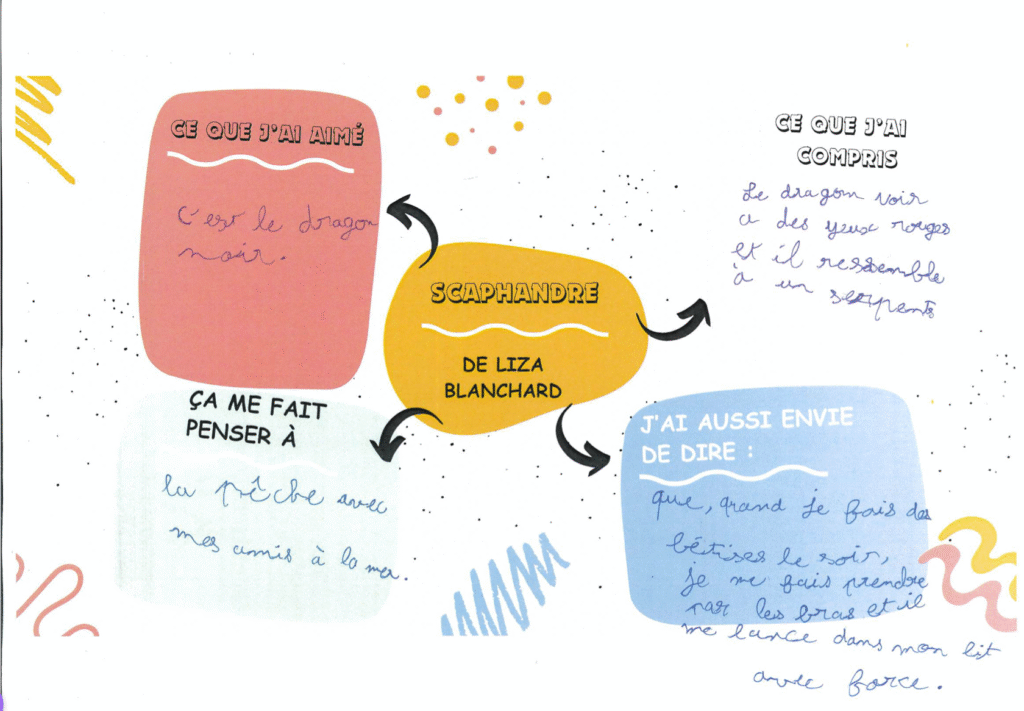 CE QUE J'AI AIMÉ
C'est le dragon
noir.
CE QUE J'AI
COMPRIS
Le dragon noir
a des yeux rouges
et il ressemble
à un serpents
SCAPHANDRE
DE LIZA
BLANCHARD
ÇA ME FAIT
PENSER À
la pêche avec
mes amis à la mer.
J'AI AUSSI ENVIE
DE DIRE :
que, quand je fais des
bêtises le soir,
je me fais prendre
par les bras et il
me lance dans mon lit
avec force.